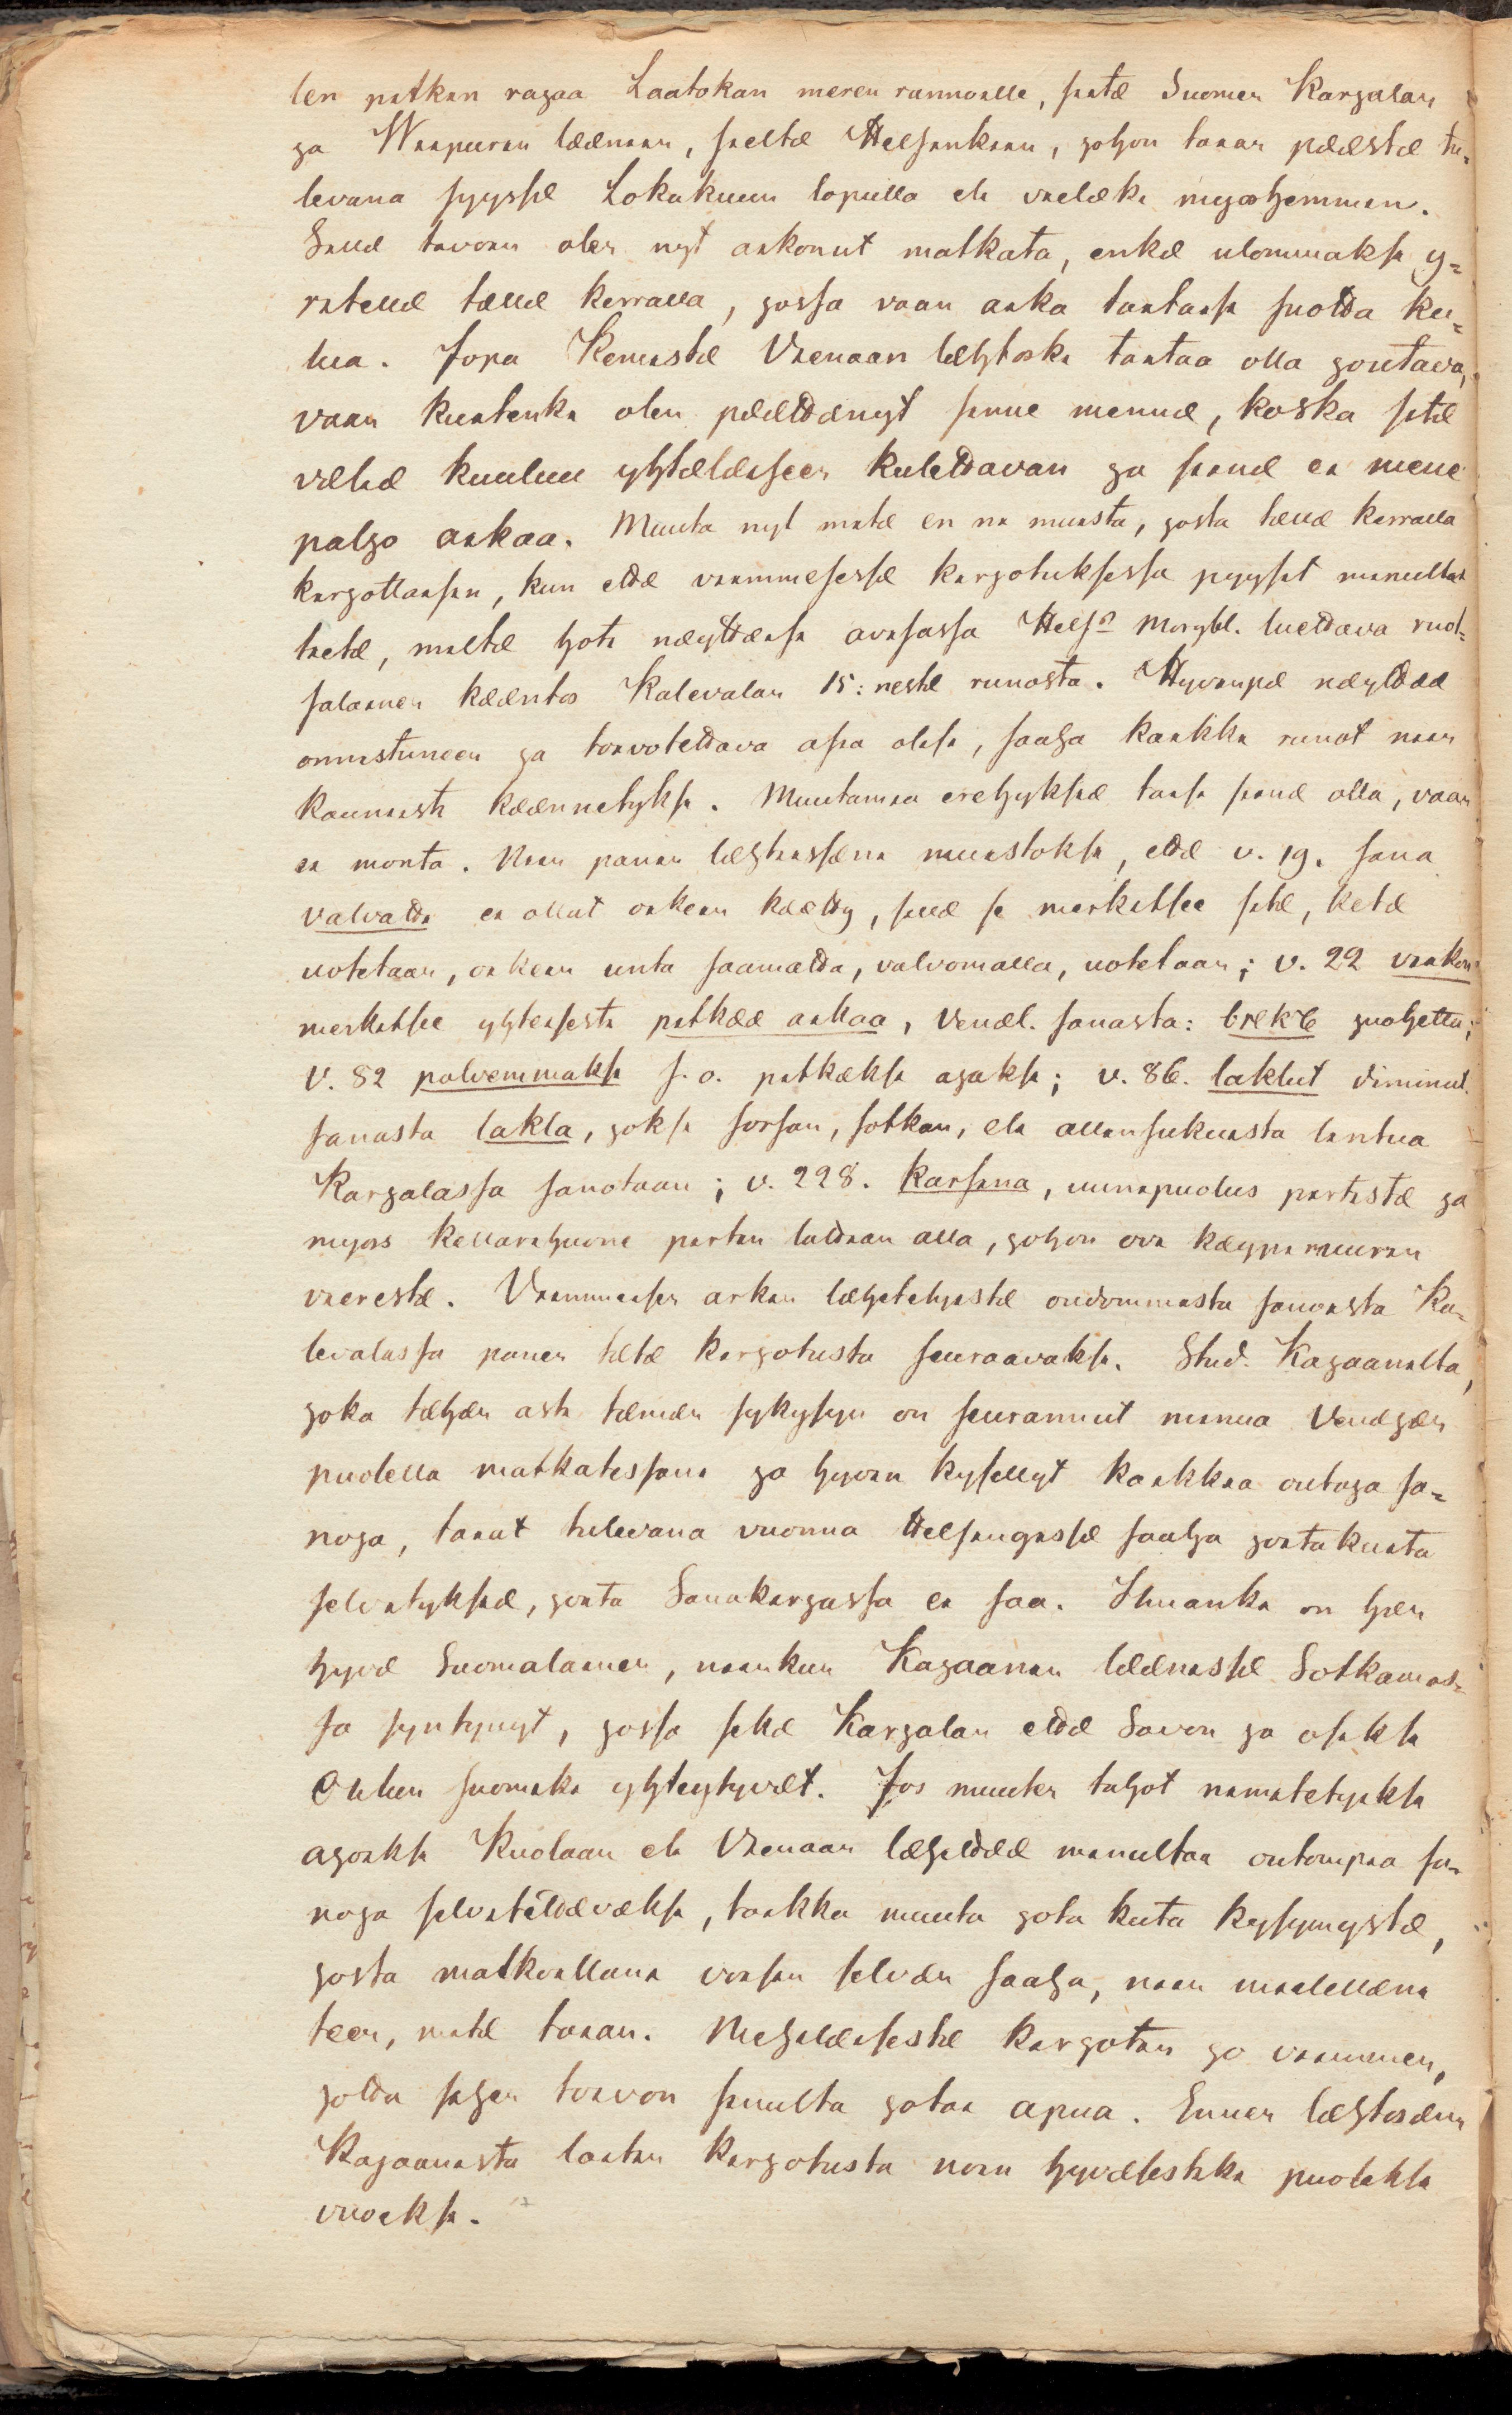 len pitkin rajaa Laatokan meren rannoille, siitä Suomen Karjalan
ja Wiipurin lääniin, sieltä Helsinkiin, johon taian päästä tu-
levana syyssä Lokakuun lopulla eli vieläki myöhemmin.
Sillä tavoin olen nyt aikonut matkata, enkä ulommaksi y-
ritellä tällä kerralla, jossa vaan aika taitaisi suotta ku-
lua. Jopa Kemistä Vienaan lähtöki taitaa olla joutava,
vaan kuitenki olen päättänyt sinne mennä, koska sitä
väliä kuuluu yhtäläiseen kulettavan ja siinä ei mene
paljo aikaa. Muuta nyt mitä en ni muista, josta tällä kerralla
kirjottaisin, kun että viimmesessä kirjotuksessa pyysit minulta
tietä, miltä hoti näyttäisi avisassa Hels:s Morgbl. luettava ruot-
salainen käännös Kalevalan 15:nestä runosta. Hyvinpä näyttää
onnistuneen ja toivotettava asia olisi, saaha kaikki runot niin
kauniisti käännetyksi. Muutamia erehyksiä taisi siinä olla, vaan
ei monta. Niin panin lähteissäni muistoksi, että v. 19. sana
valvatti ei ollut oikein käätty, sillä se merkitsee sitä, ketä
uotetaan, oikein unta saamatta, valvomalla, uotetaan; v. 22 viikon
merkitsee yhteisesti pitkää aikaa, Venäl. sanasta: вѣкъ juohettu;
v. 82 polvemmaksi s. o. pitkäksi ajaksi; v. 86. laklut diminut.
sanasta lakla, joksi sorsan, sotkan, eli allinsukuista lintua
Karjalassa sanotaan; v. 228. karsina, uunipuolus pirtistä ja
myös kellarihuone pirtin lattian alla, johon ovi käypi muurin
vierestä. Viimmeisen arkin lähetetyistä oudommista sanoista Ka-
levalassa panen tätä kirjotusta seuraavaksi. Stud. Kajaanilta,
joka tähän asti tämän sykysyn on seurannut minua Venäjän
puolella matkatessani ja hyvin kysellyt kaikkia outoja sa-
noja, taiat tulevana vuonna Helsingissä saaha joitakuita
selvityksiä, joita Sanakirjassa ei saa. Ilmanki on hän
hyvä Suomalainen, niinkun Kajaanin läänissä Sotkamos-
sa syntynyt, jossa sekä Karjalan että Savon ja osiksi
Oulun suomiki yhteytyvät. Jos muuten tahot nimitetyiksi
ajoiksi Kuolaan eli Vienaan lähettää minultaa outompia sa-
noja selvitettäväksi, taikka muuta jota kuta kysymystä,
josta matkoillani voisin selvän saaha, niin mielelläni
teen, mitä taian. Mehiläisestä kirjotin jo viimmen,
jotta siihen toivon sinulta jotai apua. Ennen lähtöäni
Kajaanista laitan kirjotusta noin hyväsestiki puoleksi
vuoeksi.